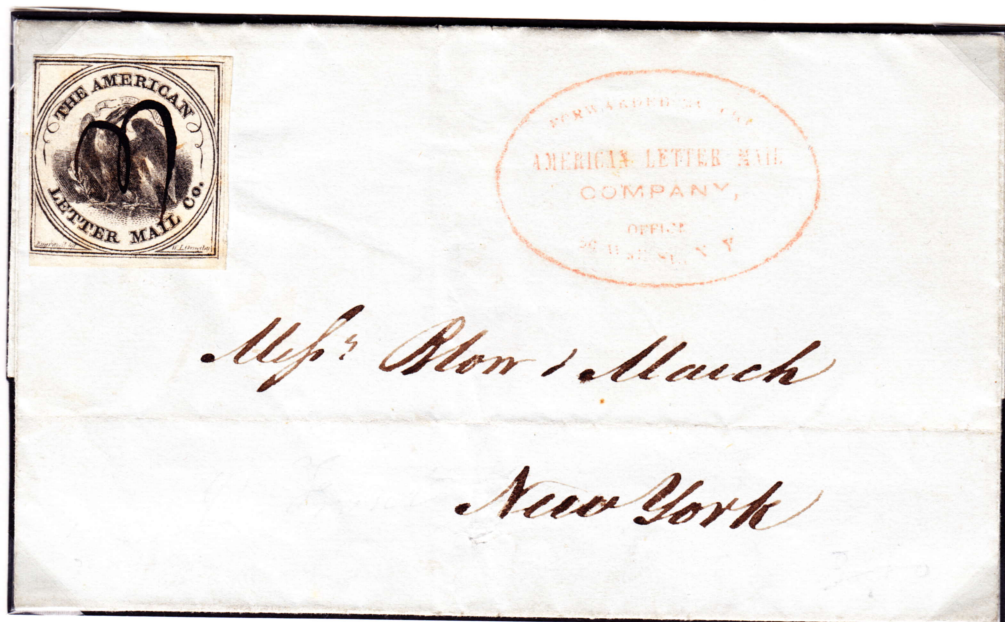 THE AMERICAN
LETTER MAIL Co.
FORWARDED BY THE
AMERICAN LETTER MAIL
COMPANY,
OFFICE
St. N Y
Messrs Blow & March
New York